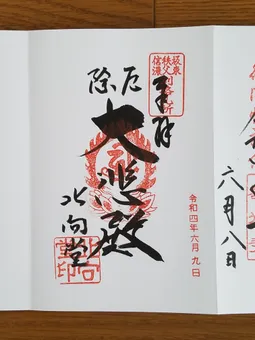 坂東
秩父
信濃
奉拝
厄除
大悲殿
北向堂
令和四年六月九日
六月八日